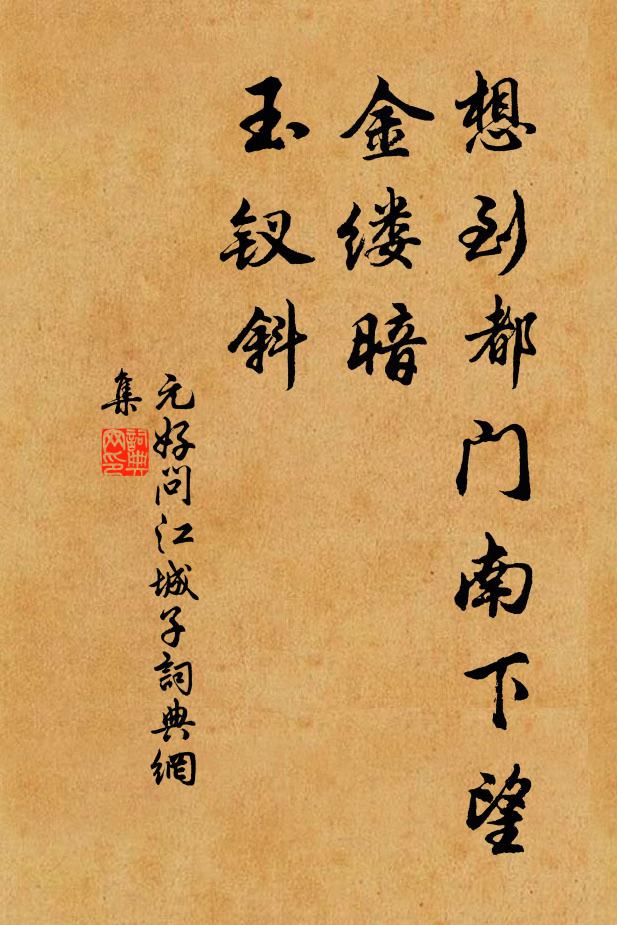 想到都门南下望
金缕暗
玉钗斜
元好问江城子詞典網
集
詞典
网印